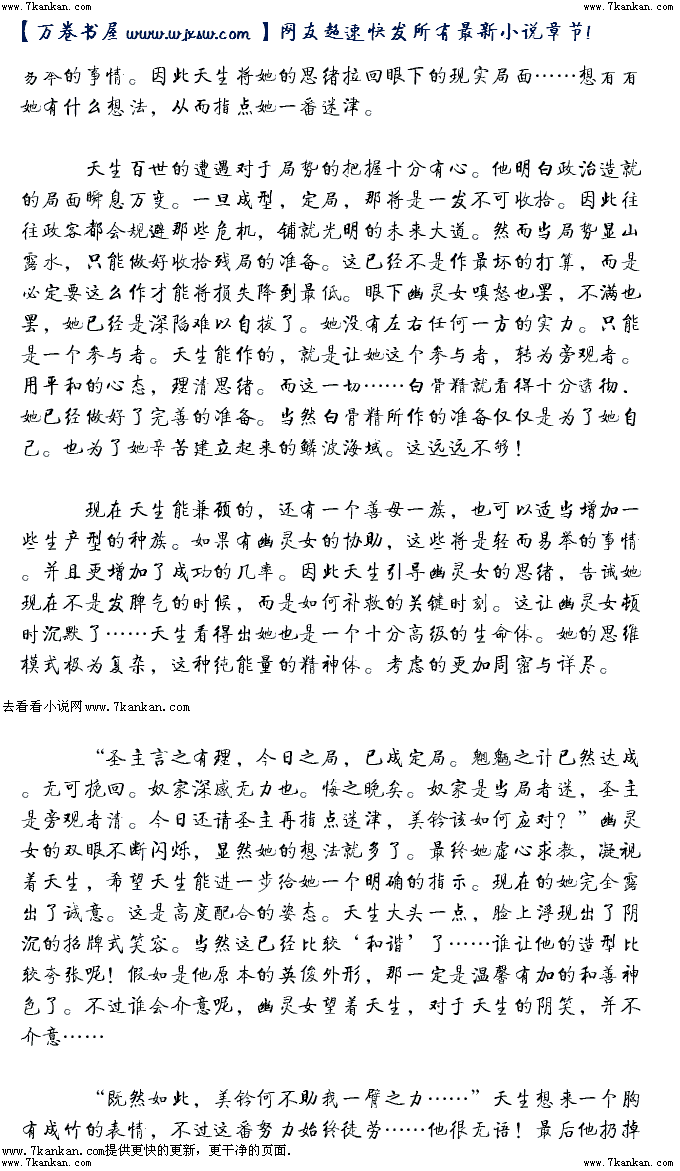 www.7kankan.com www.7kankan.com
【万卷书屋 www.wjxsw.com 】网友超速快发所有最新小说章节!
易举的事情。因此天生将她的思绪拉回眼下的现实局面……想看看
她有什么想法，从而指点她一番迷津。
天生百世的遭遇对于局势的把握十分有心。他明白政治造就
的局面瞬息万变。一旦成型，定局，那将是一发不可收拾。因此往
往政客都会规避那些危机，铺就光明的未来大道。然而当局势显山
露水，只能做好收拾残局的准备。这已经不是作最坏的打算，而是
必定要这么作才能将损失降到最低。眼下幽灵女嗔怒也罢，不满也
罢，她已经是深陷难以自拔了。她没有左右任何一方的实力。只能
是一个参与者。天生能作的，就是让她这个参与者，转为旁观者。
用平和的心态，理清思绪。而这一切……白骨精就看得十分透彻.
她已经做好了完善的准备。当然白骨精所作的准备仅仅是为了她自
己。也为了她辛苦建立起来的鳞波海域。这远远不够！
现在天生能兼顾的，还有一个善母一族，也可以适当增加一
些生产型的种族。如果有幽灵女的协助，这些将是轻而易举的事情
。并且更增加了成功的几率。因此天生引导幽灵女的思绪，告诫她
现在不是发脾气的时候，而是如何补救的关键时刻。这让幽灵女顿
时沉默了……天生看得出她也是一个十分高级的生命体。她的思维
模式极为复杂，这种纯能量的精神体。考虑的更加周密与详尽。
去看看小说网www.7kankan.com
“圣主言之有理，今日之局，已成定局。魍魉之计已然达成
。无可挽回。奴家深感无力也。悔之晚矣。奴家是当局者迷，圣主
是旁观者清。今日还请圣主再指点迷津，美铃该如何应对？”幽灵
女的双眼不断闪烁，显然她的想法就多了。最终她虚心求教，凝视
着天生，希望天生能进一步给她一个明确的指示。现在的她完全露
出了诚意。这是高度配合的姿态。天生大头一点，脸上浮现出了阴
沉的招牌式笑容。当然这已经比较‘和谐’了……谁让他的造型比
较夸张呢！假如是他原本的英俊外形，那一定是温馨有加的和善神
色了。不过谁会介意呢，幽灵女望着天生，对于天生的阴笑，并不
介意……
“既然如此，美铃何不助我一臂之力……”天生想来一个胸
有成竹的表情，不过这番努力始终徒劳……他很无语！最后他扔掉
www.7kankan.com提供更快的更新，更干净的页面.
www.7kankan.com www.7kankan.com